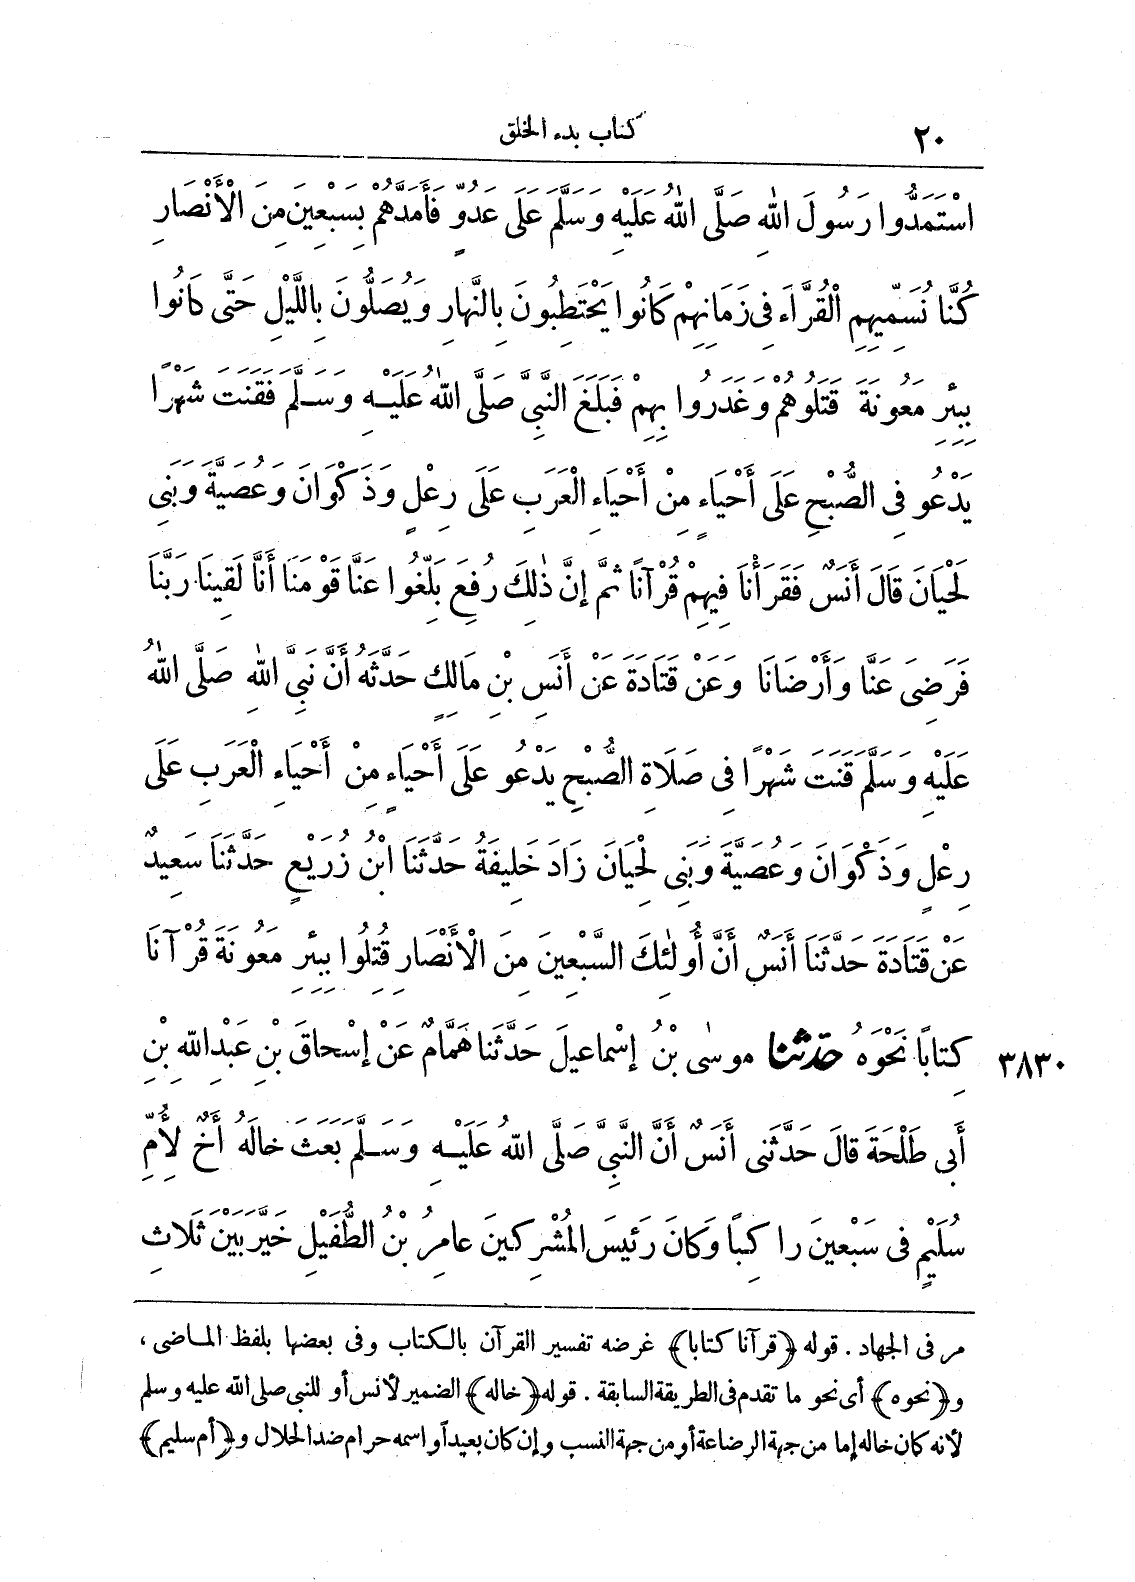 ٢٠
كتاب بدء الخلق
اسْتَمَدُّوا رَسُولَ اللهِ صَلَّى اللهُ عَلَيْهِ وَسَلَّمَ عَلَى عَدُوٍّ فَأَمَدَّهُمْ بِسَبْعِينَ مِنَ الْأَنْصَارِ
كُنَّا نُسَمِّيهِمِ الْقُرَّاءَ فِى زَمَانِهِمْ كَانُوا يَحْتَطِبُونَ بِالنَّهَارِ وَيُصَلُّونَ بِاللَّيْلِ حَتَّى كَانُوا
بِبِئْرِ مَعُونَةَ قَتَلُوهُمْ وَغَدَرُوا بِهِمْ فَبَلَغَ النَّبِىَّ صَلَّى اللهُ عَلَيْهِ وَسَلَّمَ فَقَنَتَ شَهْرًا
يَدْعُو فِى الصُّبْحِ عَلَى أَحْيَاءٍ مِنْ أَحْيَاءِ الْعَرَبِ عَلَى رِعْلٍ وَذَكْوَانَ وَعُصَيَّةَ وَبَنِى
لَحْيَانَ قَالَ أَنَسٌ فَقَرَأْنَا فِيهِمْ قُرْآنًا ثُمَّ إِنَّ ذٰلِكَ رُفِعَ بَلِّغُوا عَنَّا قَوْمَنَا أَنَّا لَقِينَا رَبَّنَا
فَرَضِىَ عَنَّا وَأَرْضَانَا وَعَنْ قَتَادَةَ عَنْ أَنَسِ بْنِ مَالِكٍ حَدَّثَهُ أَنَّ نَبِىَّ اللهِ صَلَّى اللهُ
عَلَيْهِ وَسَلَّمَ قَنَتَ شَهْرًا فِى صَلَاةِ الصُّبْحِ يَدْعُو عَلَى أَحْيَاءٍ مِنْ أَحْيَاءِ الْعَرَبِ عَلَى
رِعْلٍ وَذَكْوَانَ وَعُصَيَّةَ وَبَنِى لِحْيَانَ زَادَ خَلِيفَةُ حَدَّثَنَا ابْنُ زُرَيْعٍ حَدَّثَنَا سَعِيدٌ
عَنْ قَتَادَةَ حَدَّثَنَا أَنَسٌ أَنَّ أُولٰئِكَ السَّبْعِينَ مِنَ الْأَنْصَارِ قُتِلُوا بِبِئْرِ مَعُونَةَ قُرْآنًا
كِتَابًا نَحْوَهُ حَدَّثَنَا مُوسٰى بْنُ إِسْمَاعِيلَ حَدَّثَنَا هَمَّامٌ عَنْ إِسْحَاقَ بْنِ عَبْدِ اللهِ بْنِ
٣٨٣٠
أَبِى طَلْحَةَ قَالَ حَدَّثَنِى أَنَسٌ أَنَّ النَّبِىَّ صَلَّى اللهُ عَلَيْهِ وَسَلَّمَ بَعَثَ خَالَهُ أَخٌ لِأُمِّ
سُلَيْمٍ فِى سَبْعِينَ رَاكِبًا وَكَانَ رَئِيسَ الْمُشْرِكِينَ عَامِرُ بْنُ الطُّفَيْلِ خَيَّرَ بَيْنَ ثَلَاثِ
مر فى الجهاد. قوله ﴿قرآنا كتابا﴾ غرضه تفسير القرآن بالكتاب وفى بعضها بلفظ الماضى،
و﴿نحوه﴾ أى نحو ما تقدم فى الطريقة السابقة. قوله ﴿خاله﴾ الضمير لأنس أو للنبى صلى الله عليه وسلم
لأنه كان خاله إما من جهة الرضاعة أو من جهة النسب وإن كان بعيدا واسمه حرام ضد الحلال و﴿أم سليم﴾